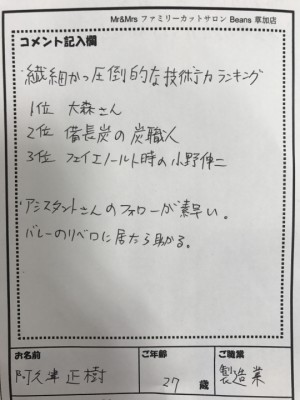 Mr&Mrs ファミリーカットサロン Beans 草加店
コメント記入欄
・繊細かつ圧倒的な技術力ランキング
1位 大森さん
2位 備長炭の炭職人
3位 フェイエノールト時の小野伸二
・アシスタントさんのフォローが素早い。
バレーのリベロに居たら助かる。
お名前
ご年齢
ご職業
阿久津 正樹
27 歳
製造業